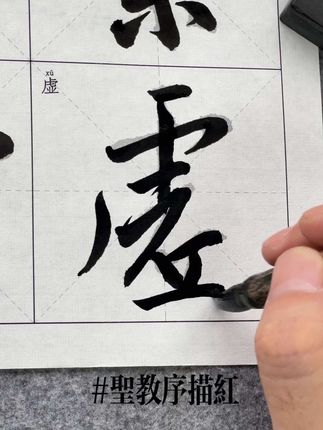 xū
虚
虛
#聖教序描紅